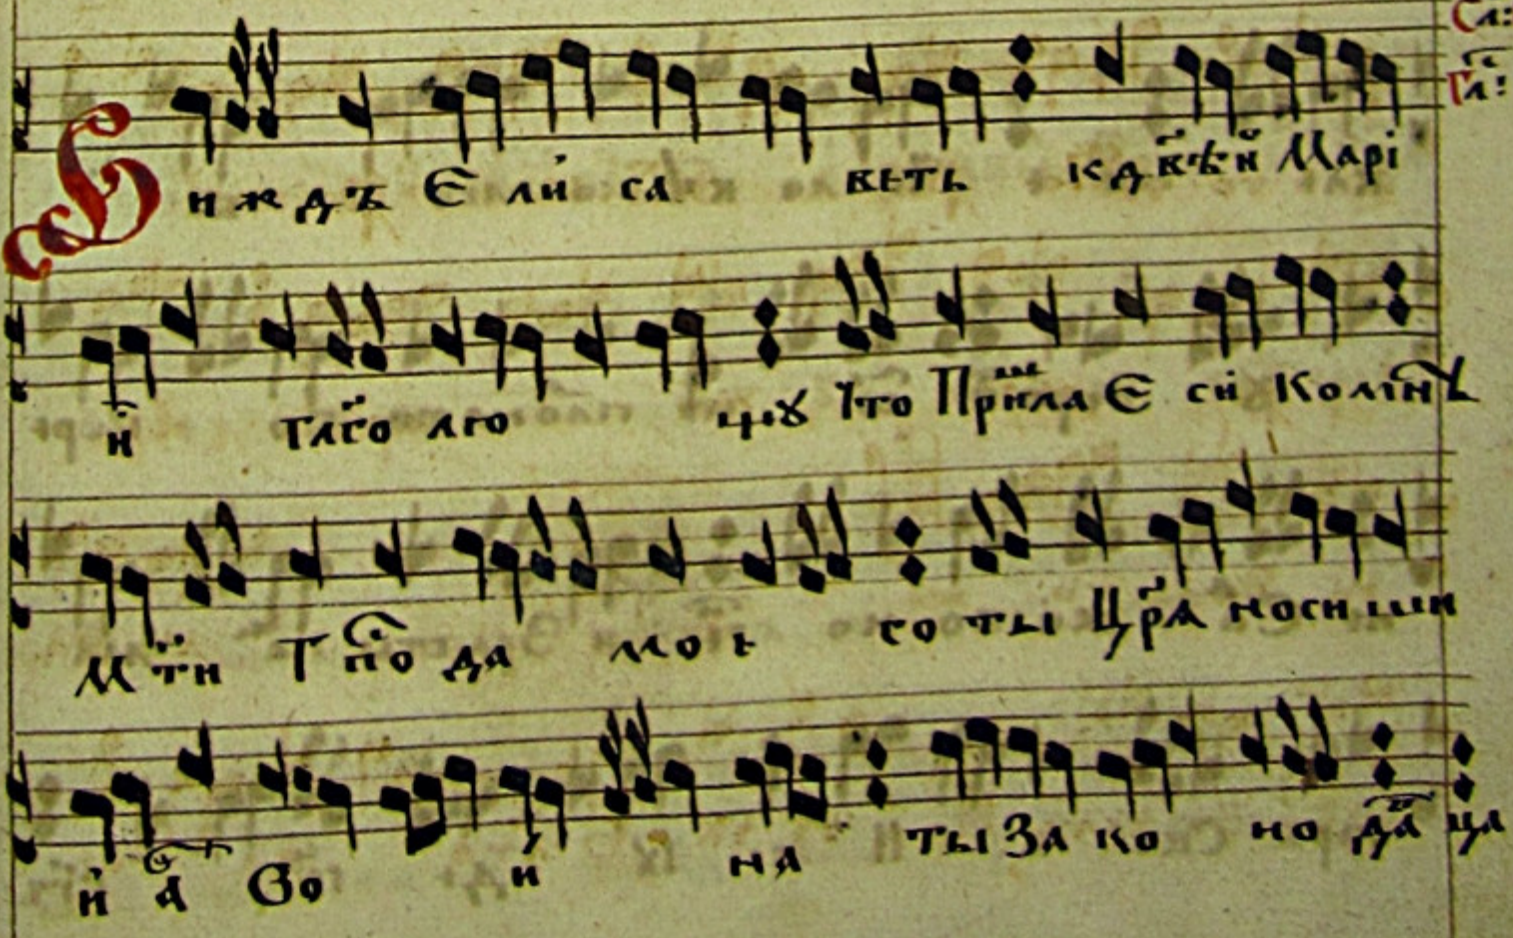 Виждъ Є ли са веть к дв҃ѣи Марі
и Глаго лю щꙋ Что Прїила Є си Ко мнѣ
Мт҃и Гп҃о да мое го ты Цр҃ѧ носиши
и аз Во и на ты За ко но да вца